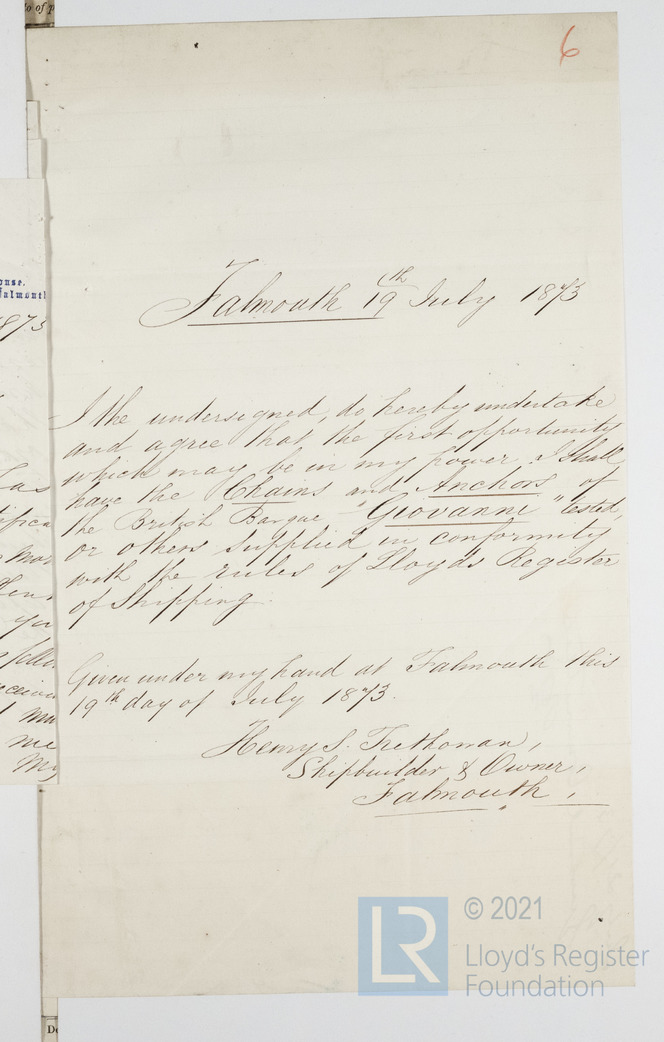 6
Falmouth 19th July 1873
I the undersigned, do hereby undertake
and agree that the first opportunity
which may be in my power, I shall
have the Chains and Anchors of
the British Barque "Giovanni" tested
or others supplied in conformity
with the rules of Lloyds Register
of Shipping.
Given under my hand at Falmouth this
19th day of July 1873.
Henry S. Trethowan,
Shipbuilder & Owner,
Falmouth,
© 2021
LR
Lloyd's Register
Foundation